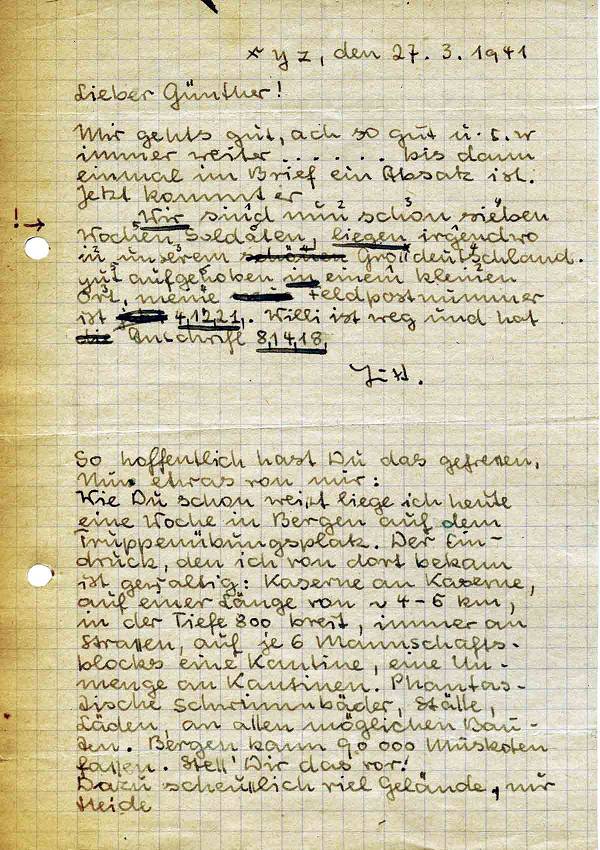 x y z, den 27. 3. 1941
Lieber Günther!
Mir gehts gut, ach so gut u. s. w
immer weiter . . . . . . bis dann
einmal im Brief ein Absatz ist.
Jetzt kommt er
! → Wir sind nun schon sieben
Wochen Soldaten, liegen irgendwo
in unserem schönen Großdeutschland.
gut aufgehoben in einem kleinen
Ort, meine Feldpostnummer
ist 4,1,2,2,1,. Willi ist weg und hat
die Anschrift 8,1,4,1,8,
So hoffentlich hast Du das gefressen,
Nun etwas von mir:
Wie Du schon weißt liege ich heute
eine Woche in Bergen auf dem
Truppenübungsplatz. Der Ein-
druck, den ich von dort bekam
ist gewaltig: Kaserne an Kaserne,
auf einer Länge von ~ 4-6 km,
in der Tiefe 800 breit, immer an
Strassen, auf je 6 Mannschafts-
blocks eine Kantine, eine Un-
menge an Kantinen. Phantas-
tische Schwimmbäder, Ställe,
Läden, an allen möglichen Bau-
ten. Bergen kann 90 000 Muskoten
fassen. Stell' Dir das vor!
Dazu scheusslich viel Gelände, nur
Heide